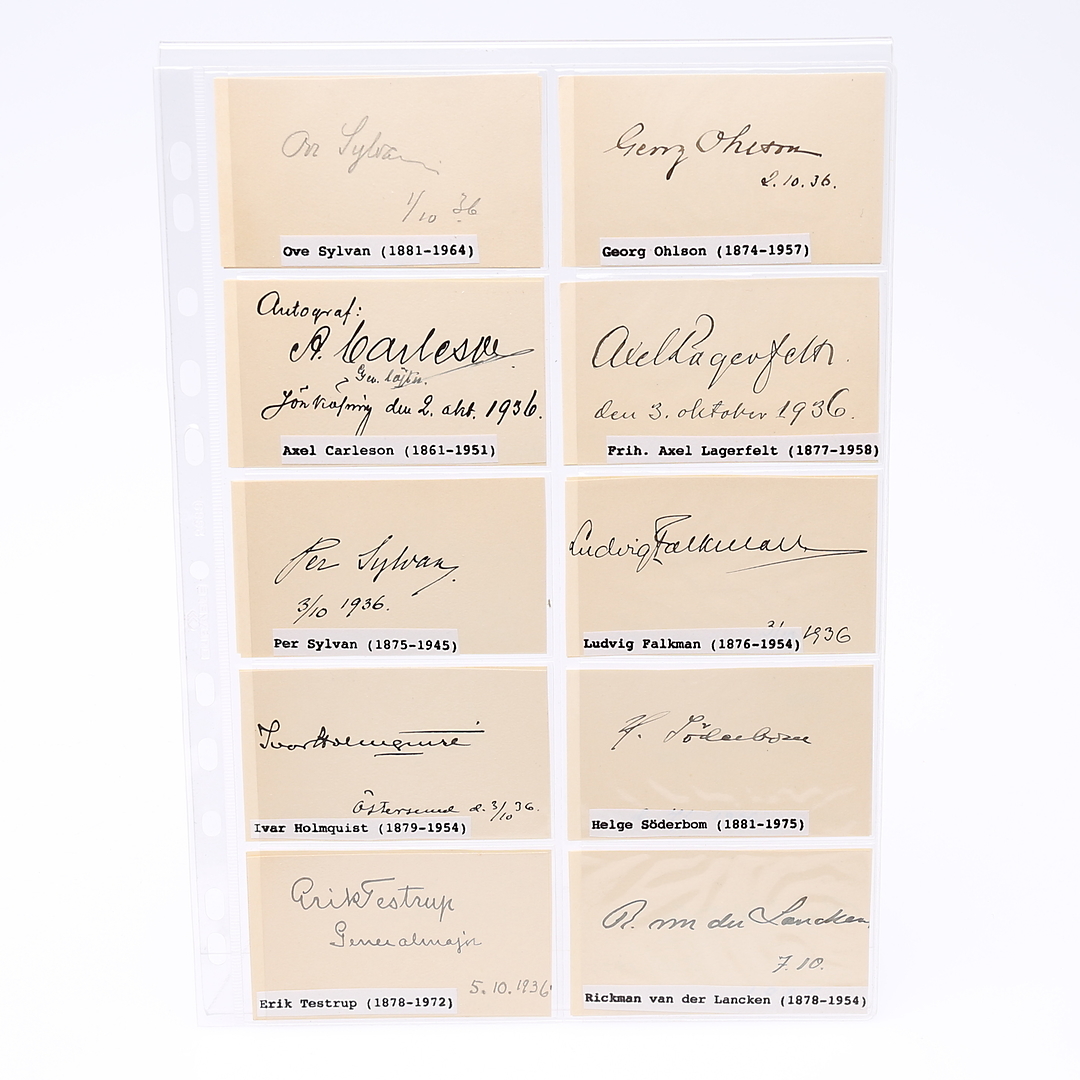 Ove Sylvan
1/10 36
Ove Sylvan (1881-1964)
Georg Ohlson
2.10.36.
Georg Ohlson (1874-1957)
Autograf:
A. Carleson
Gen. löjtn.
Jönköping den 2. okt. 1936.
Axel Carleson (1861-1951)
Axel Lagerfelt.
den 3. oktober 1936.
Frih. Axel Lagerfelt (1877-1958)
Per Sylvan
3/10 1936.
Per Sylvan (1875-1945)
Ludvig Falkman
1936
Ludvig Falkman (1876-1954)
Ivar Holmquist
Östersund d. 3/10 36.
Ivar Holmquist (1879-1954)
H. Söderbom
Helge Söderbom (1881-1975)
Erik Testrup
Generalmajor
5.10.1936
Erik Testrup (1878-1972)
R. von der Lancken
7.10.
Rickman van der Lancken (1878-1954)